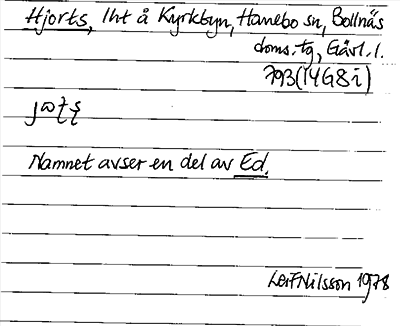 Hjorts, lht å Kyrkbyn, Hanebo sn, Bollnäs
doms. tg, Gävl. l.
793(14G8i)
Namnet avser en del av Ed.
Leif Nilsson 1978